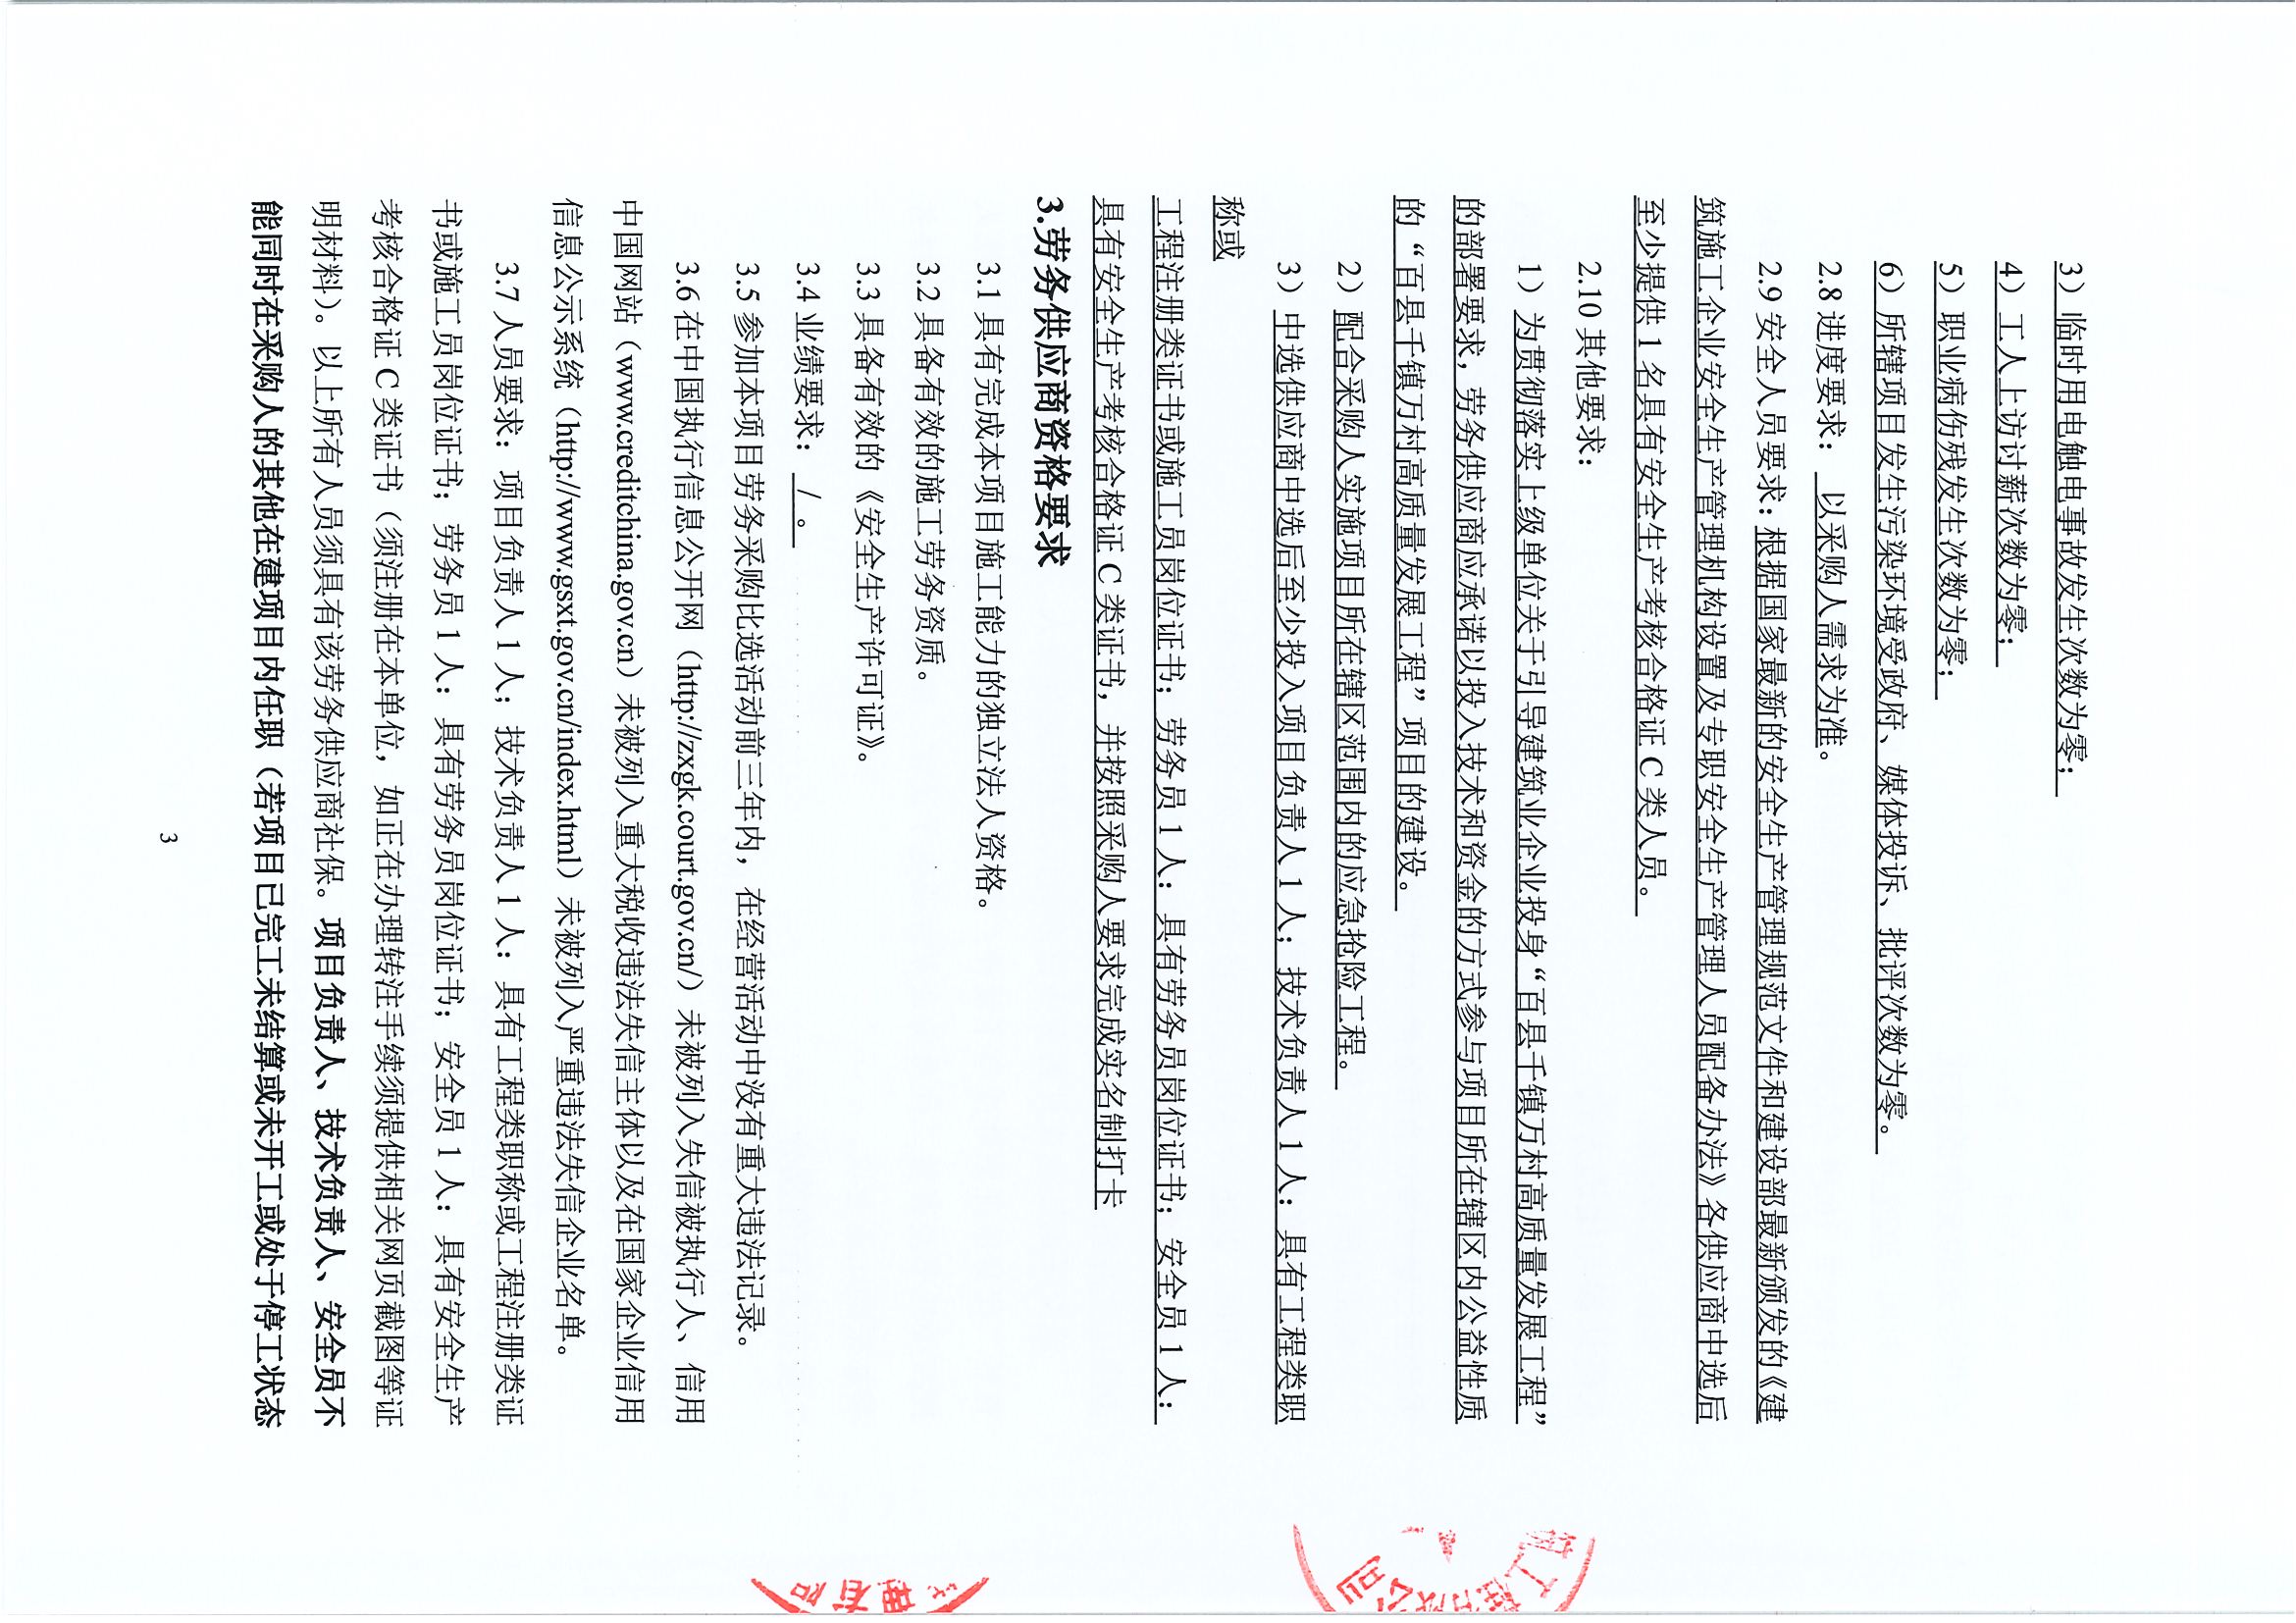 3）临时用电触电事故发生次数为零；
4）工人上访讨薪次数为零；
5）职业病伤残发生次数为零；
6）所辖项目发生污染环境受政府、媒体投诉、批评次数为零。
2.8 进度要求： 以采购人需求为准。
2.9 安全人员要求：根据国家最新的安全生产管理规范文件和建设部最新颁发的《建
筑施工企业安全生产管理机构设置及专职安全生产管理人员配备办法》各供应商中选后
至少提供 1 名具有安全生产考核合格证 C 类人员。
2.10 其他要求：
1）为贯彻落实上级单位关于引导建筑业企业投身“百县千镇万村高质量发展工程”
的部署要求，劳务供应商应承诺以投入技术和资金的方式参与项目所在辖区内公益性质
的“百县千镇万村高质量发展工程”项目的建设。
2）配合采购人实施项目所在辖区范围内的应急抢险工程。
3）中选供应商中选后至少投入项目负责人 1 人；技术负责人 1 人：具有工程类职
称或
工程注册类证书或施工员岗位证书；劳务员 1 人：具有劳务员岗位证书；安全员 1 人：
具有安全生产考核合格证 C 类证书，并按照采购人要求完成实名制打卡
3.劳务供应商资格要求
3.1 具有完成本项目施工能力的独立法人资格。
3.2 具备有效的施工劳务资质。
3.3 具备有效的《安全生产许可证》。
3.4 业绩要求： / 。
3.5 参加本项目劳务采购比选活动前三年内，在经营活动中没有重大违法记录。
3.6 在中国执行信息公开网（http://zxgk.court.gov.cn/）未被列入失信被执行人、信用
中国网站（www.creditchina.gov.cn）未被列入重大税收违法失信主体以及在国家企业信用
信息公示系统（http://www.gsxt.gov.cn/index.html）未被列入严重违法失信企业名单。
3.7 人员要求：项目负责人 1 人；技术负责人 1 人：具有工程类职称或工程注册类证
书或施工员岗位证书；劳务员 1 人：具有劳务员岗位证书；安全员 1 人：具有安全生产
考核合格证 C 类证书（须注册在本单位，如正在办理转注手续须提供相关网页截图等证
明材料）。以上所有人员须具有该劳务供应商社保。项目负责人、技术负责人、安全员不
能同时在采购人的其他在建项目内任职（若项目已完工未结算或未开工或处于停工状态
3
工程有限公司